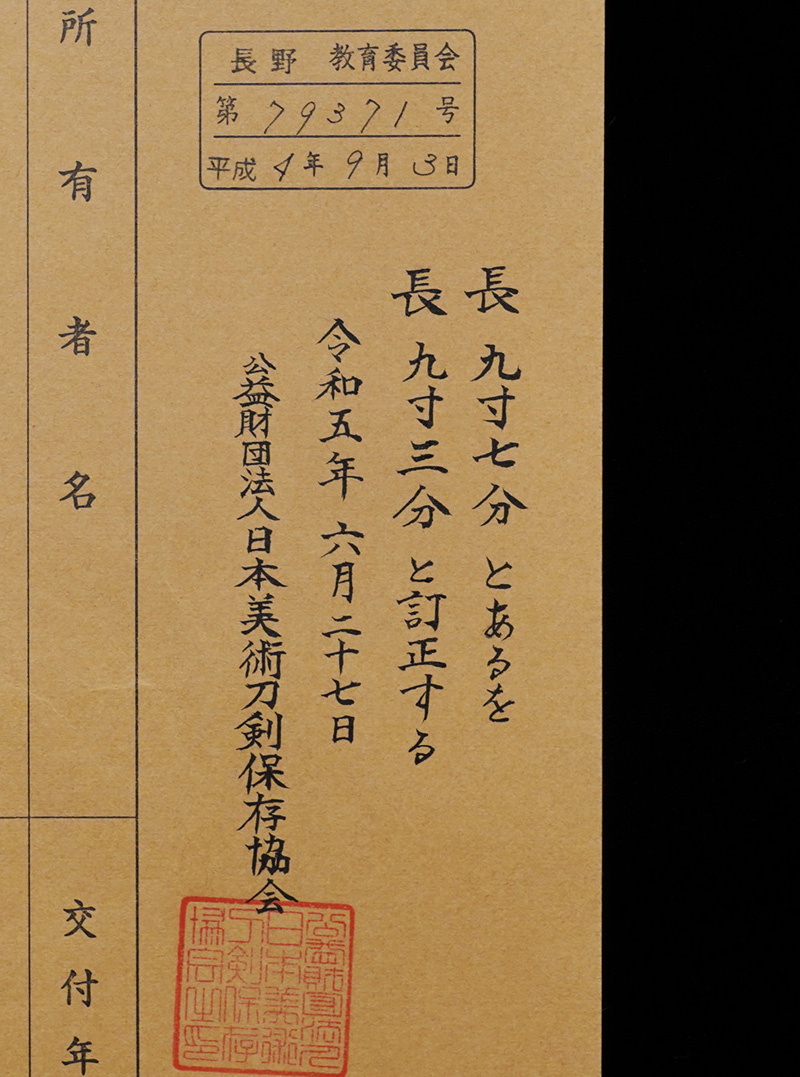 長野 教育委員会
第 79371 号
平成 4年 9月 3日
長 九寸七分 とあるを
長 九寸三分 と訂正する
令和五年 六月二十七日
公益財団法人日本美術刀剣保存協会
所有者名
交付年